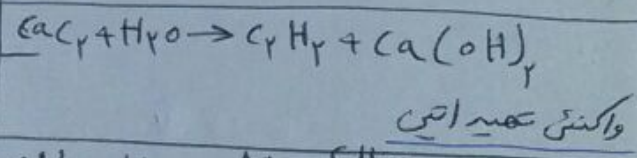 CaC۲+H۲O→C۲H۲+Ca(OH)۲
واکنش تهیه اتین